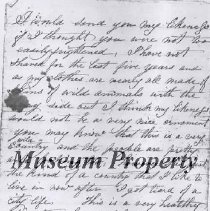 I would send you my Photo
if I thought you were not too
easily frightened I have not
shaved for the last five years and
as my clothes are nearly all made of
of wild animals with the
side out I think my
would not be a very nice ornament
you may know that this is a very
country and the people are pretty
Museum Property
the kind of a country that I like to
live in now after I get tired of a
city life. This is a very healthy